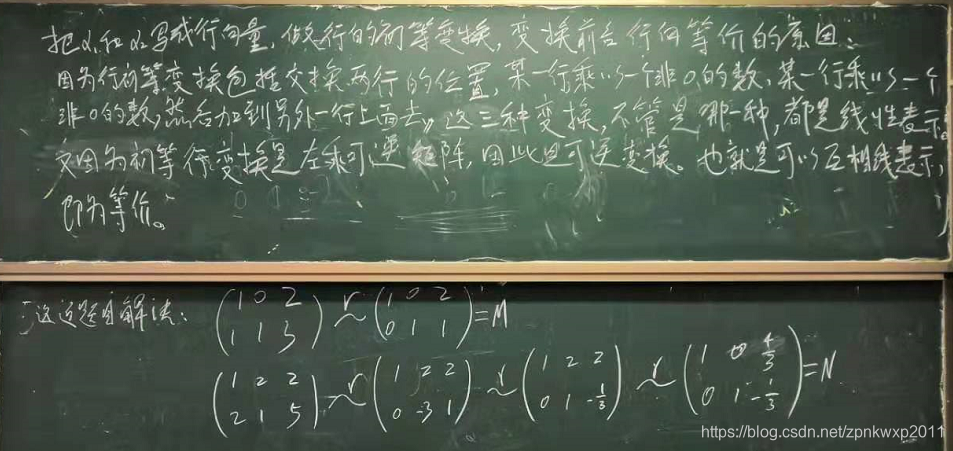 把α₁和α₂写成行向量，做行的初等变换，变换前后行向等价的原因：
因为行初等变换包括交换两行的位置，某一行乘以一个非0的数，某一行乘以一个
非0的数，然后加到另外一行上面去，这三种变换，不管是哪一种，都是线性表示。
又因为初等行变换是左乘可逆矩阵，因此且可逆变换。也就是可以互相线表示，
即为等价。
这道题目解法：
(1 0 2; 1 1 3) r~ (1 0 2; 0 1 1) = M
(1 2 2; 2 1 5) r~ (1 2 2; 0 -3 1) r~ (1 2 2; 0 1 -1/3) r~ (1 0 4/3; 0 1 -1/3) = N
https://blog.csdn.net/zpnkwxp2011